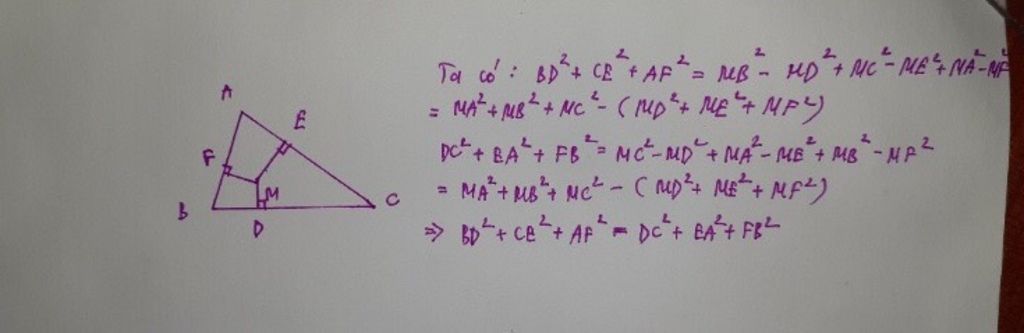 A
E
F
M
B
C
D
Ta có: BD² + CE² + AF² = MB² - MD² + MC² - ME² + MA² - MF²
= MA² + MB² + MC² - (MD² + ME² + MF²)
DC² + EA² + FB² = MC² - MD² + MA² - ME² + MB² - MF²
= MA² + MB² + MC² - (MD² + ME² + MF²)
⇒ BD² + CE² + AF² = DC² + EA² + FB²